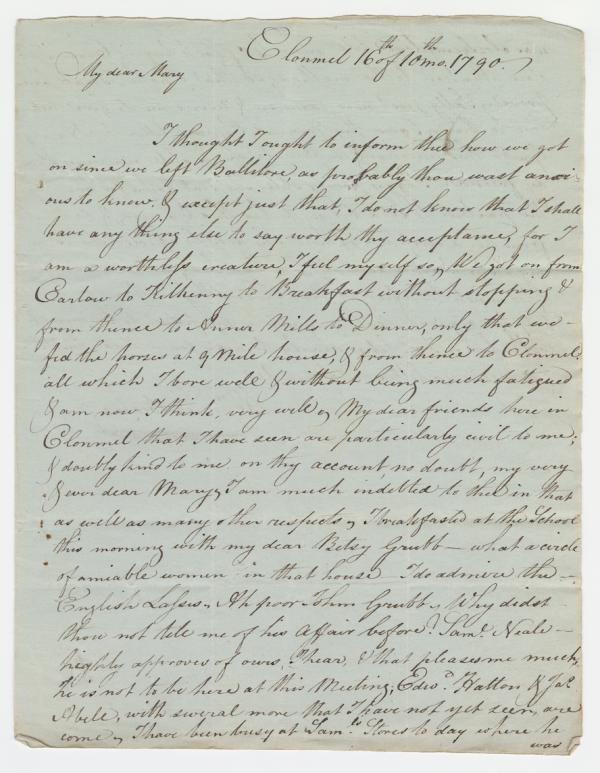 Clonmel 16th of 10th mo. 1790.
My dear Mary
I thought I ought to inform thee how we got
on since we left Ballitore, as probably thou wast anxi-
ous to know, & except just that, I do not know that I shall
have any thing else to say worth thy acceptance, for I
am a worthless creature, I feel myself so, We got on from
Carlow to Kilkenny to Breakfast without stopping &
from thence to Anner Mills to Dinner, only that we -
fed the horses at 9 Mile house, & from thence to Clonmel,
all which I bore well & without being much fatigued
& am now, I think, very well, My dear friends here in
Clonmel that I have seen are particularly civil to me,
& doubly kind to me on thy account, no doubt, my very
& ever dear Mary, I am much indebted to thee in that
as well as many other respects, I breakfasted at the School
this morning with my dear Betsy Grubb - what a circle
of amiable women in that house - I do admire the -
English Lasses, Ah poor John Grubb, Why didst
thou not tell me of his affair before? Saml. Neale -
highly approves of ours, I hear, & that pleases me much,
he is not to be here at this Meeting, Edwd. Hatton & Jas.
Abele, with several more that I have not yet seen, are
come, I have been busy at Saml.s Stores to day where he
was